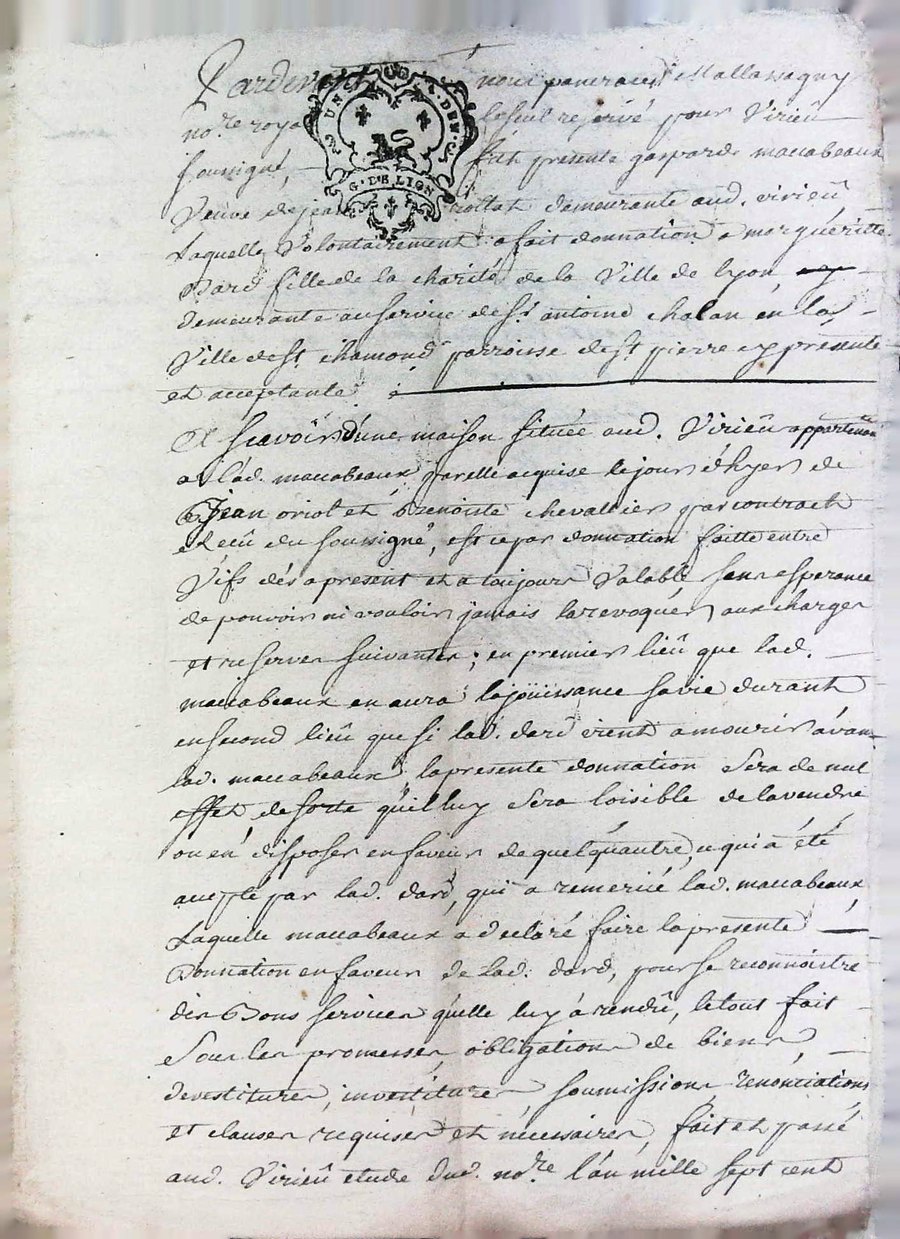 Pardevant nous pancrace
no.re roya le seul reservé pour Virieû
soussigné, fût presente gasparde maccabeaux
Veuve de jean demeurante aud. virieû
Laquelle Volontairement a fait donnation a margueritte
Dard fille de la charité de la Ville de Lyon
demeurante au service de sr. antoine chalan en la
Ville de st. chamond parroisse de st. pierre cy presente
et acceptante
Et scavoir d'une maison située aud. Virieû appartenan
a lad. maccabeaux par elle acquise le jour d'hyer de
Jean oriol et benoiste chevallier par contract
reçû du soussigné, est ce par donnation faitte entre
Vifs dés a present et a toujours Valable sans esperance
de pouvoir ni vouloir jamais la revoquer aux charges
et reserves suivantes; en premier lieû que lad.
maccabeaux en aura la joüissance sa vie durant
en second lieû que si lad. dard vient a mourir avan
lad. maccabeaux, la presente donnation sera de nul
effet de sorte qu'il luy sera loisible de la vendre
ou en disposer en faveur de quelqu'autre, ce qui a été
accepté par lad. dard, qui a remercié lad. maccabeaux
Laquelle maccabeaux a declaré faire la presente
Donnation en faveur de lad. dard, pour se reconnoistre
des Bons services qu'elle luy a rendû, le tout fait
Sous les promesses, obligations de biens
devestitures, investitures soumissions, renonciations
et clauses requises et necessaires, fait et passé
aud. Virieû etude dud. no.re l'an mille sept cent
G. DE LION
UN
DEN.